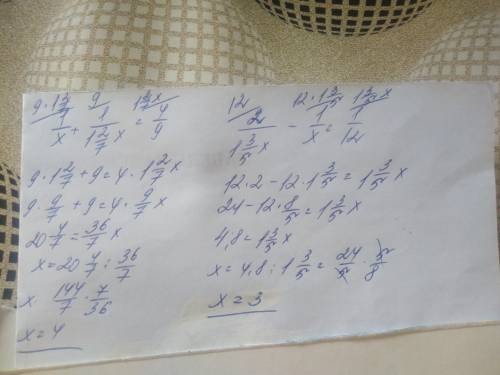 9·1 2/7 9 1 2/7 x
1/x + 1/(1 2/7 x) = 4/9
9·1 2/7 + 9 = 4·1 2/7 x
9·9/7 + 9 = 4·9/7 x
20 4/7 = 36/7 x
x = 20 4/7 : 36/7
x 144/7 · 7/36
x = 4
12 12·1 3/5 1 3/5 x
2/(1 3/5 x) - 1/x = 1/12
12·2 - 12·1 3/5 = 1 3/5 x
24 - 12·8/5 = 1 3/5 x
4,8 = 1 3/5 x
x = 4,8 : 1 3/5 = 24/5 · 5/8
x = 3